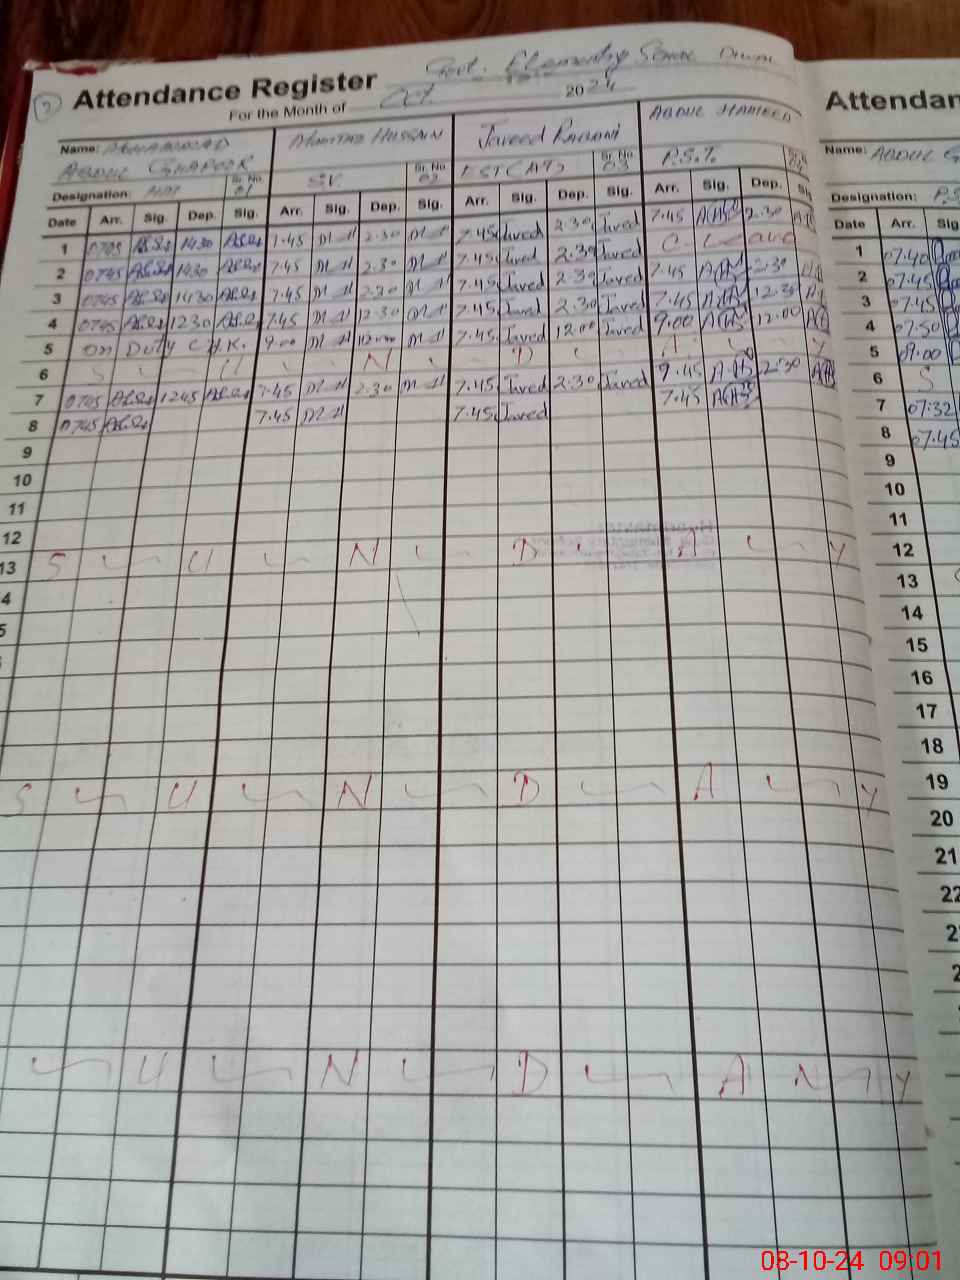 2 Attendance Register Govt. Elementry School
For the Month of Oct. 2024
Name: MUHAMMAD ABDUL GHAFOOR
MUMTAZ HUSSAIN
Javeed Rabani
ABDUL HAMEED
Designation: Sr. No. 01
S.V. Sr. No. 02
EST(AT) Sr. No. 03
P.S.T.
Date Arr. Sig. Dep. Sig. Arr. Sig. Dep. Sig. Arr. Sig. Dep. Sig. Arr. Sig. Dep. Si
1 0745 1430 7.45 2.30 7.45 Javed 2.30 Javed 7.45 2.30
2 0745 1430 7.45 2.30 7.45 Javed 2.30 Javed C. Leave
3 0745 1430 7.45 2.30 7.45 Javed 2.30 Javed 7.45 2.30
4 0745 1230 7.45 12.30 7.45 Javed 2.30 Javed 7.45 12.30
5 On Duty 9.00 12.00 7.45 Javed 12.00 Javed 9.00 12.00
6 S U N D A Y
7 0745 1245 7.45 2.30 7.45 Javed 2.30 Javed 9.45 2.30
8 0745 7.45 7.45 Javed 7.45
9
10
11
12
13 S U N D A Y
4
5
S U N D A Y
U N D A N Y
Attendan
Name: ABDUL G
Designation: P.S
Date Arr. Sig
1 07.40
2 07.45
3 07.45
4 07.50
5 09.00
6 S
7 07:32
8 07.45
9
10
11
12
13
14
15
16
17
18
19
20
21
22
2
2
08-10-24 09:01